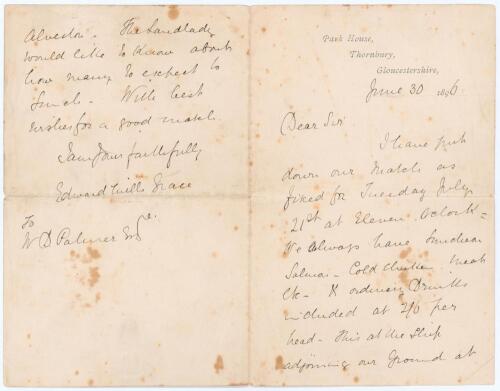 Park House,
Thornbury,
Gloucestershire,
June 30 1896
Dear Sir
I have put
down our Match as
fixed for Tuesday July
21st at Eleven. Oclock -
We always have luncheon
Salmon - Cold Chicken Meat
Etc - & ordinary Drinks
included at 2/6 per
head - This at the Ship
adjoining our Ground at
Alveston. The Landlady
would like to know about
how many to expect to
lunch - With best
wishes for a good match.
I am Yours faithfully
Edward Mills Grace
To
W D Palmer Esqre.